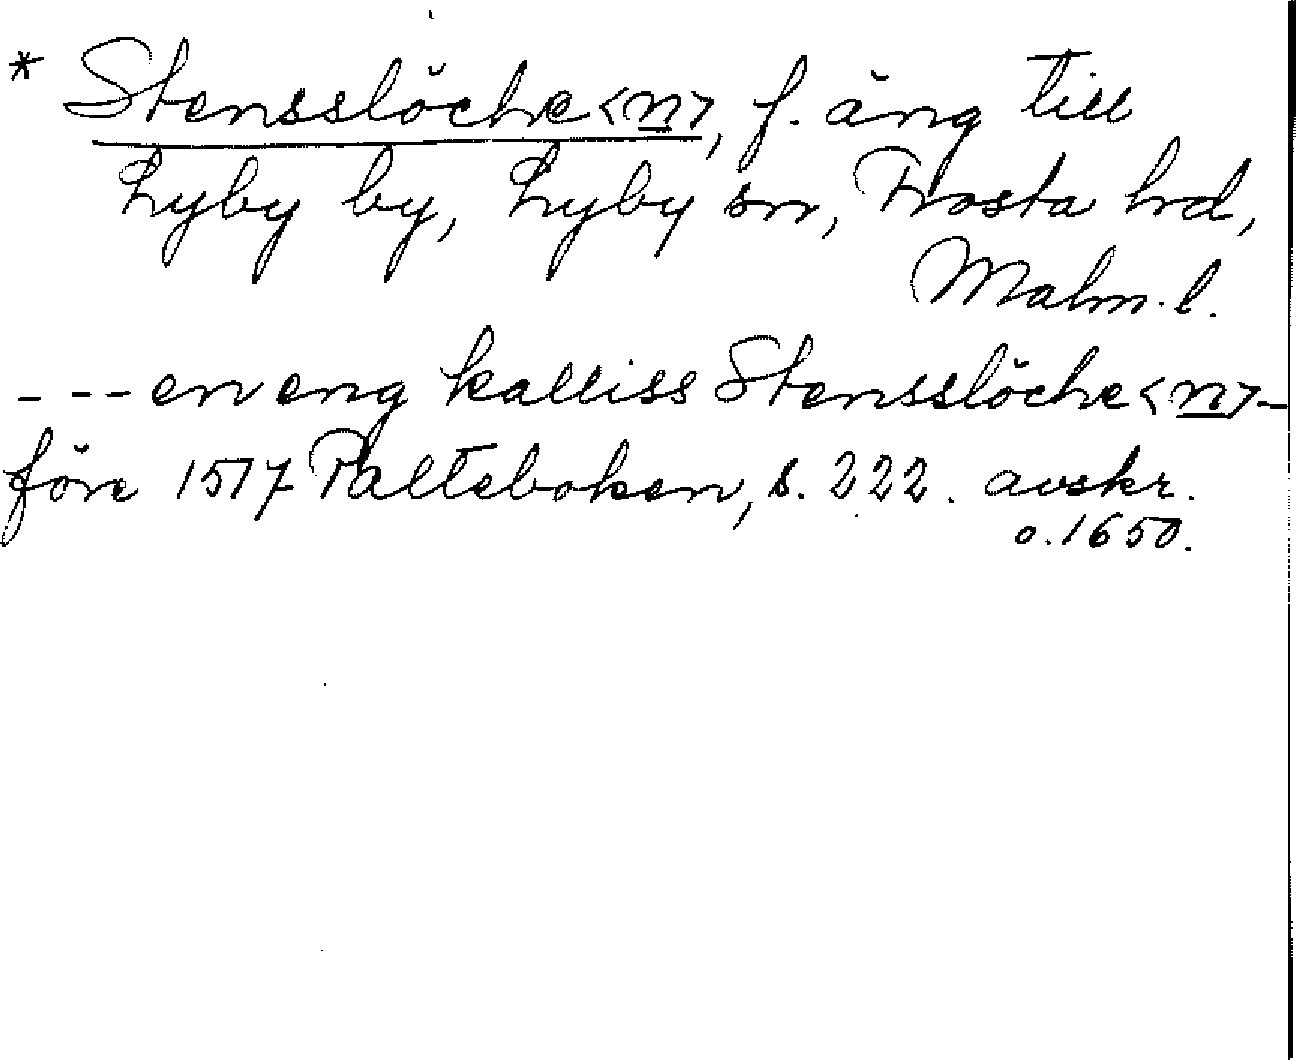 * Stensslöche<n>, f. äng till
Lyby by, Lyby sn, Frosta hd,
Malm. l.
--- en eng kalliss Stensslöche<n>-
före 1517 Palteboken, s. 222. avskr.
o. 1650.